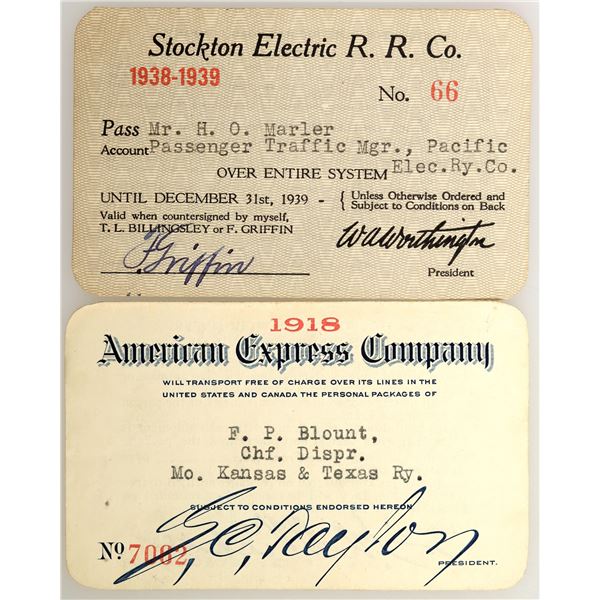 Stockton Electric R. R. Co.
1938-1939
No. 66
Pass Mr. H. O. Marler
Account Passenger Traffic Mgr., Pacific
OVER ENTIRE SYSTEM Elec.Ry.Co.
UNTIL DECEMBER 31st, 1939 - { Unless Otherwise Ordered and
Subject to Conditions on Back
Valid when countersigned by myself,
T. L. BILLINGSLEY or F. GRIFFIN
F Griffin
W A Worthington
President
1918
American Express Company
WILL TRANSPORT FREE OF CHARGE OVER ITS LINES IN THE
UNITED STATES AND CANADA THE PERSONAL PACKAGES OF
F. P. Blount,
Chf. Dispr.
Mo. Kansas & Texas Ry.
SUBJECT TO CONDITIONS ENDORSED HEREON
No 7062
PRESIDENT.